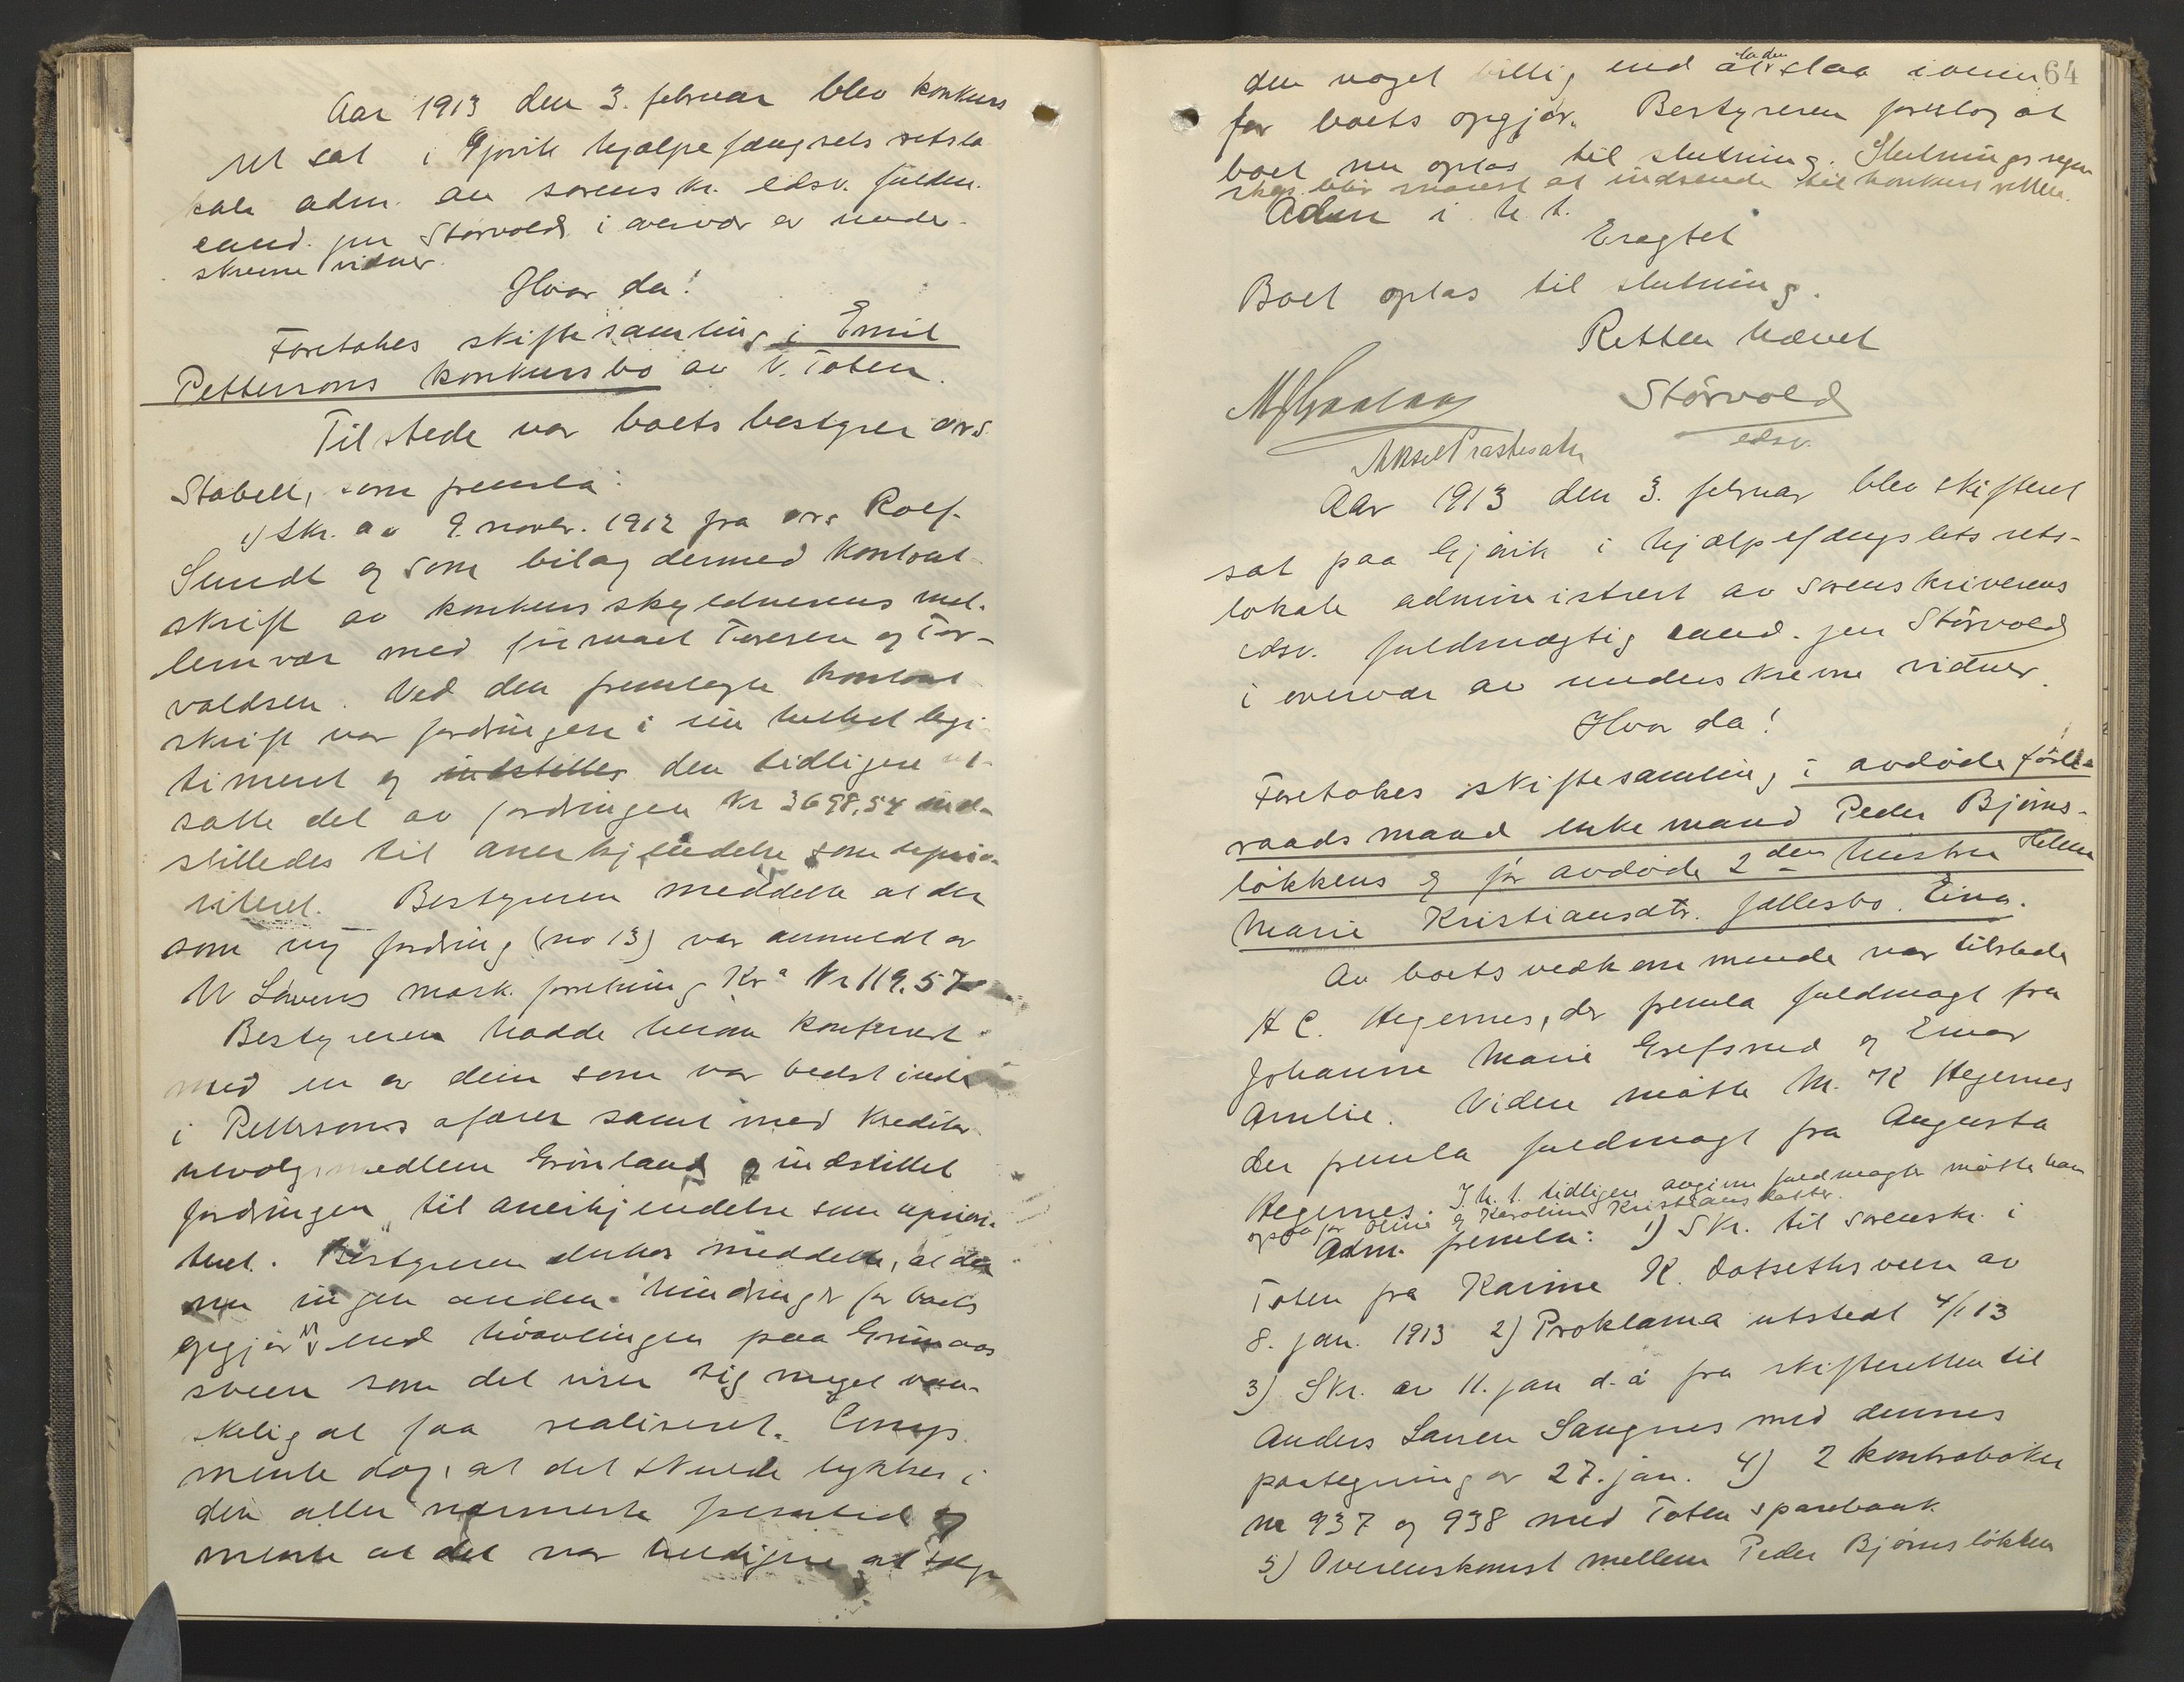 Aar 1913 den 3. februar blev konkurs
ret sat i Gjøvik hjælpefængsels retslo
kale adm. av sorenskr. edsv. fuldm.
cand. jur Størvold i overvær av under-
skrevne vidner.
Hvor da!
Foretokes skiftesamling i Emil
Pettersons konkursbo av V. Toten.
Tilstede var boets bestyrer ovrs.
Stabell, som fremla:
1) Skr. av 9. novbr. 1912 fra ovrs Rolf
Sundt og som bilag dermed kontrat
skrift av konkursskyldnerens mel-
lemvær med firmaet Toresen og Tor-
valdsen. Ved den fremlagte kontrat
skrift var fordringen i sin helhet legi
timeret og indstilles den tidligere ut-
satte del av fordringen kr 3698,54 ind-
stilledes til anerkjendelse som uprio-
riteret. Bestyreren meddelte at der
som ny fordring (no 13) var anmeldt av
W Løvens mask. forretning Kra Kr 119.57
Bestyreren hadde herom konfereret
med en av dem som var bedst inde
i Pettersons afærer samt med kreditor
utvalgsmedlem Grønland og indstillet
fordringen til anerkjendelse som upriori-
teret. Bestyreren meddelte, at der
nu ingen anden hindring er for boets
opgjør end paa
sveen som det viser sig meget van-
skelig at faa realiseret. Comp.
mente dog, at det skulde lykkes i
den aller nærmeste fremtid og
mente at det var heldigere at sælge
64
den noget billig end at la den staa iveien
for boets opgjør. Bestyreren foreslog at
boet nu optas til slutning. Slutningsregn
skap blir snarest at indsende til konkursretten.
Adm i h. t.
Eragtet
Boet optas til slutning.
Retten hævet
Størvold
edsv.
Aksel
Aar 1913 den 3. februar blev skifteret
sat paa Gjøvik i hjælpefængslets rets-
lokale administrert av sorenskriverens
edsv. fuldmægtig cand. jur Størvold
i overvær av underskrevne vidner.
Hvor da!
Foretokes skiftesamling i avdøde føde-
raadsmand enkemand Peder Bjørns-
løkkens og før avdøde 2den hustru Helene
Marie Kristiansdtr. fællesbo. Eina.
Av boets vedkommende var tilstede
H C. Hegernes, der fremla fuldmagt fra
Johanne Marie Grefsrud og Einar
Amlie. Videre møtte M. K Hegernes
der fremla fuldmagt fra Augusta
Hegernes. I h. t. tidligere avgivne fuldmagter møtte han
ogsaa for Oline og Karoline Kristiansdatter.
Adm. fremla: 1) Skr. til sorenskr. i
Toten fra Karine K. Dotsethsveen av
8. jan. 1913 2) Proklama utstedt 4/1 13
3) Skr. av 11. jan d. å fra skifteretten til
Anders Larsen Sangnes med dennes
paategning av 27. jan. 4) 2 kontrabøker
no 937 og 938 med Toten sparebank
5) Overenskomst mellem Peder Bjørnsløkken